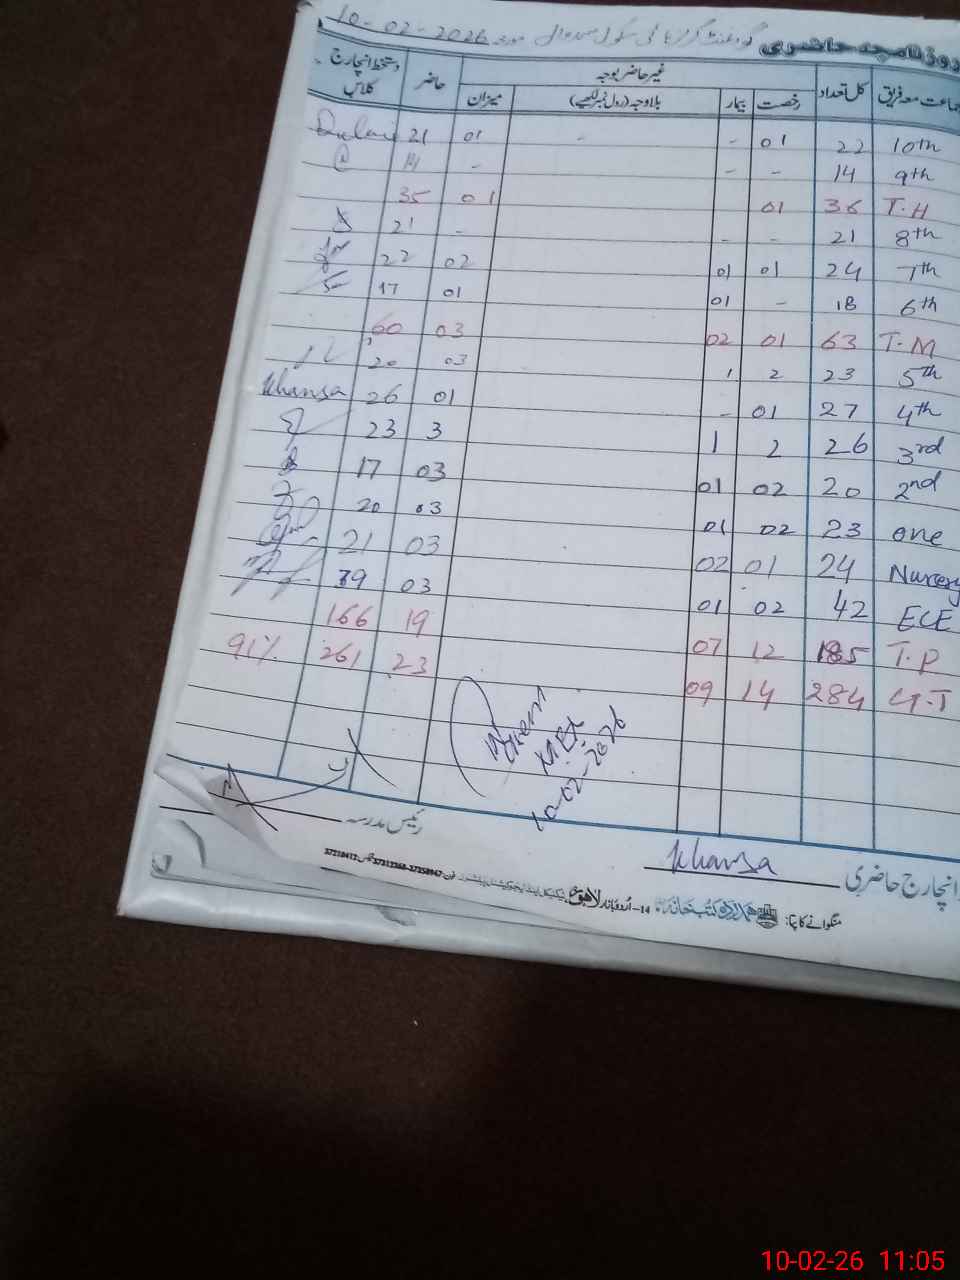 روزنامچہ حاضری گورنمنٹ گرلز ہائی سکول مورخہ 10-02-2026
جماعت معہ فریق کل تعداد غیر حاضر بوجہ حاضر دستخط انچارج کلاس
رخصت بیمار بلاوجہ (رول نمبر لکھیے) میزان
10th 22 01 - - 01 21
9th 14 - - - 14
T.H 36 01 01 35
8th 21 - - - 21
7th 24 01 01 02 22
6th 18 - 01 01 17
T.M 63 01 02 03 60
5th 23 2 1 03 20
4th 27 01 - 01 26 Khansa
3rd 26 2 1 3 23
2nd 20 02 01 03 17
one 23 02 01 03 20
Nursery 24 01 02 03 21
ECE 42 02 01 03 39
T.P 185 12 07 19 166
G.T 284 14 09 23 261 91%
10-02-2026
انچارج حاضری Khansa رئیس مدرسہ
منگوانے کا پتہ: ہمدرد کتب خانہ 14-اردو بازار لاہور
10-02-26 11:05